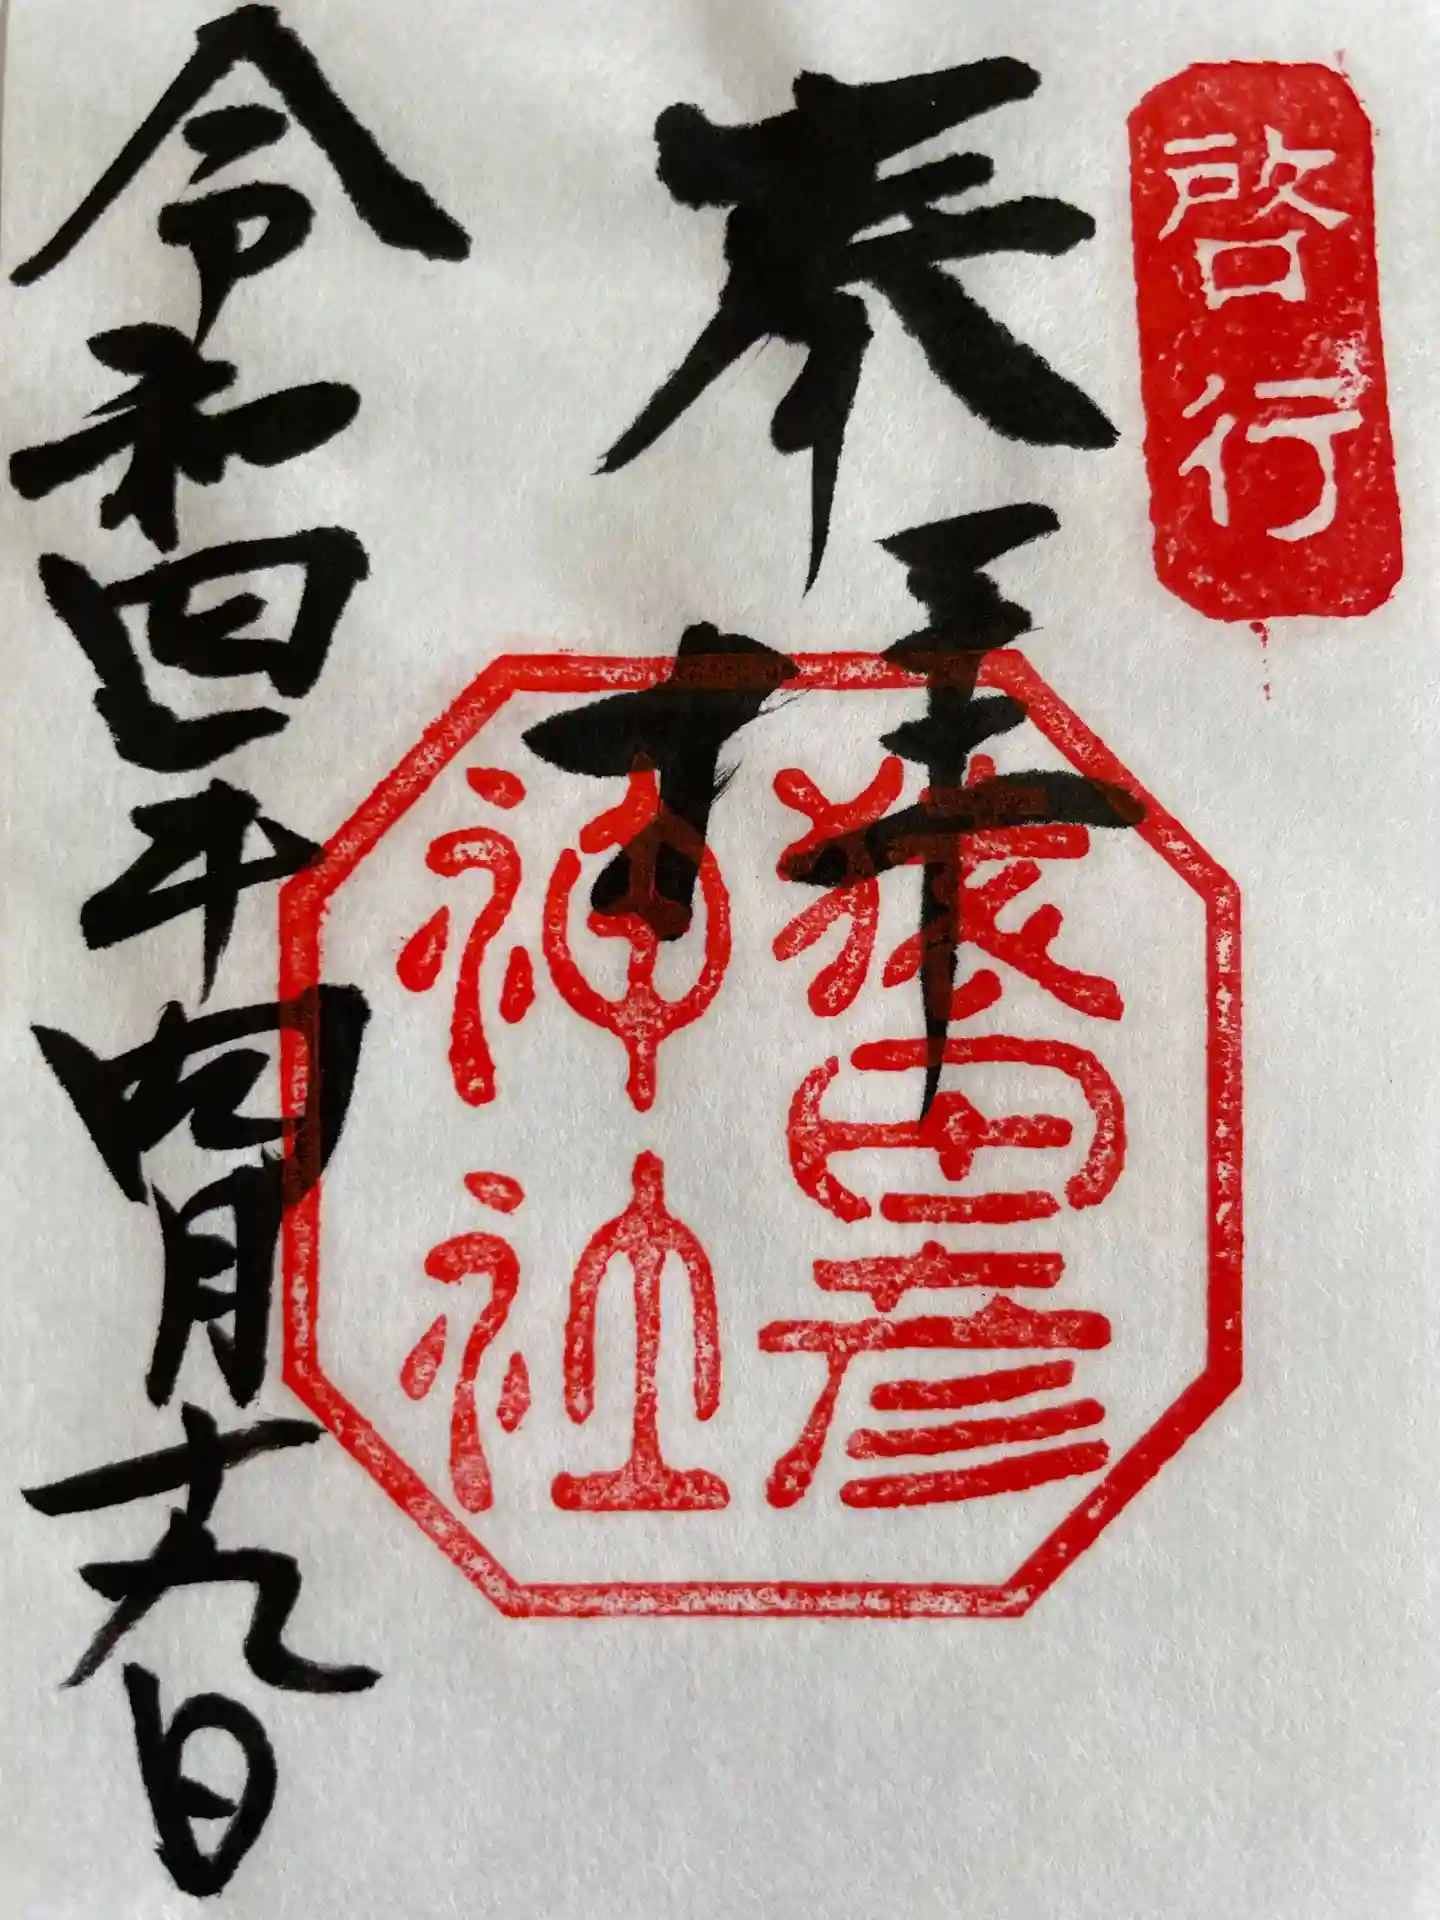 啓行
奉拝
猿田彦
神社
令和四年四月十九日